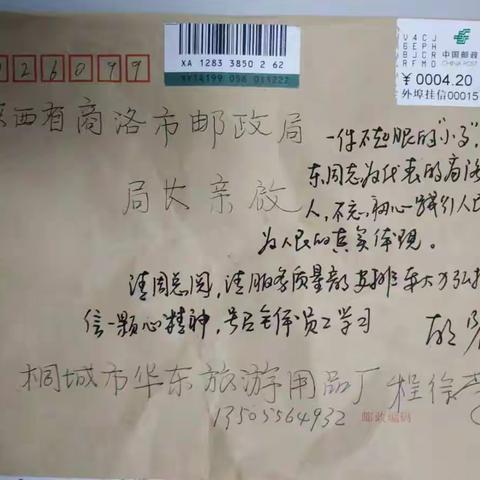 XA 1283 3850 2 62
中国邮政
CHINA POST
¥0004.20
外埠挂信00015
西省商洛市邮政局
局长亲啟
一件不起眼的"小事"
东同志为代表的商洛
人,不忘初心
为人民的真实体现。
请周总阅,请服务质量部安排
信一颗心精神,号召全体员工学习
桐城市华东旅游用品厂 程徐
13505564932
邮政编码